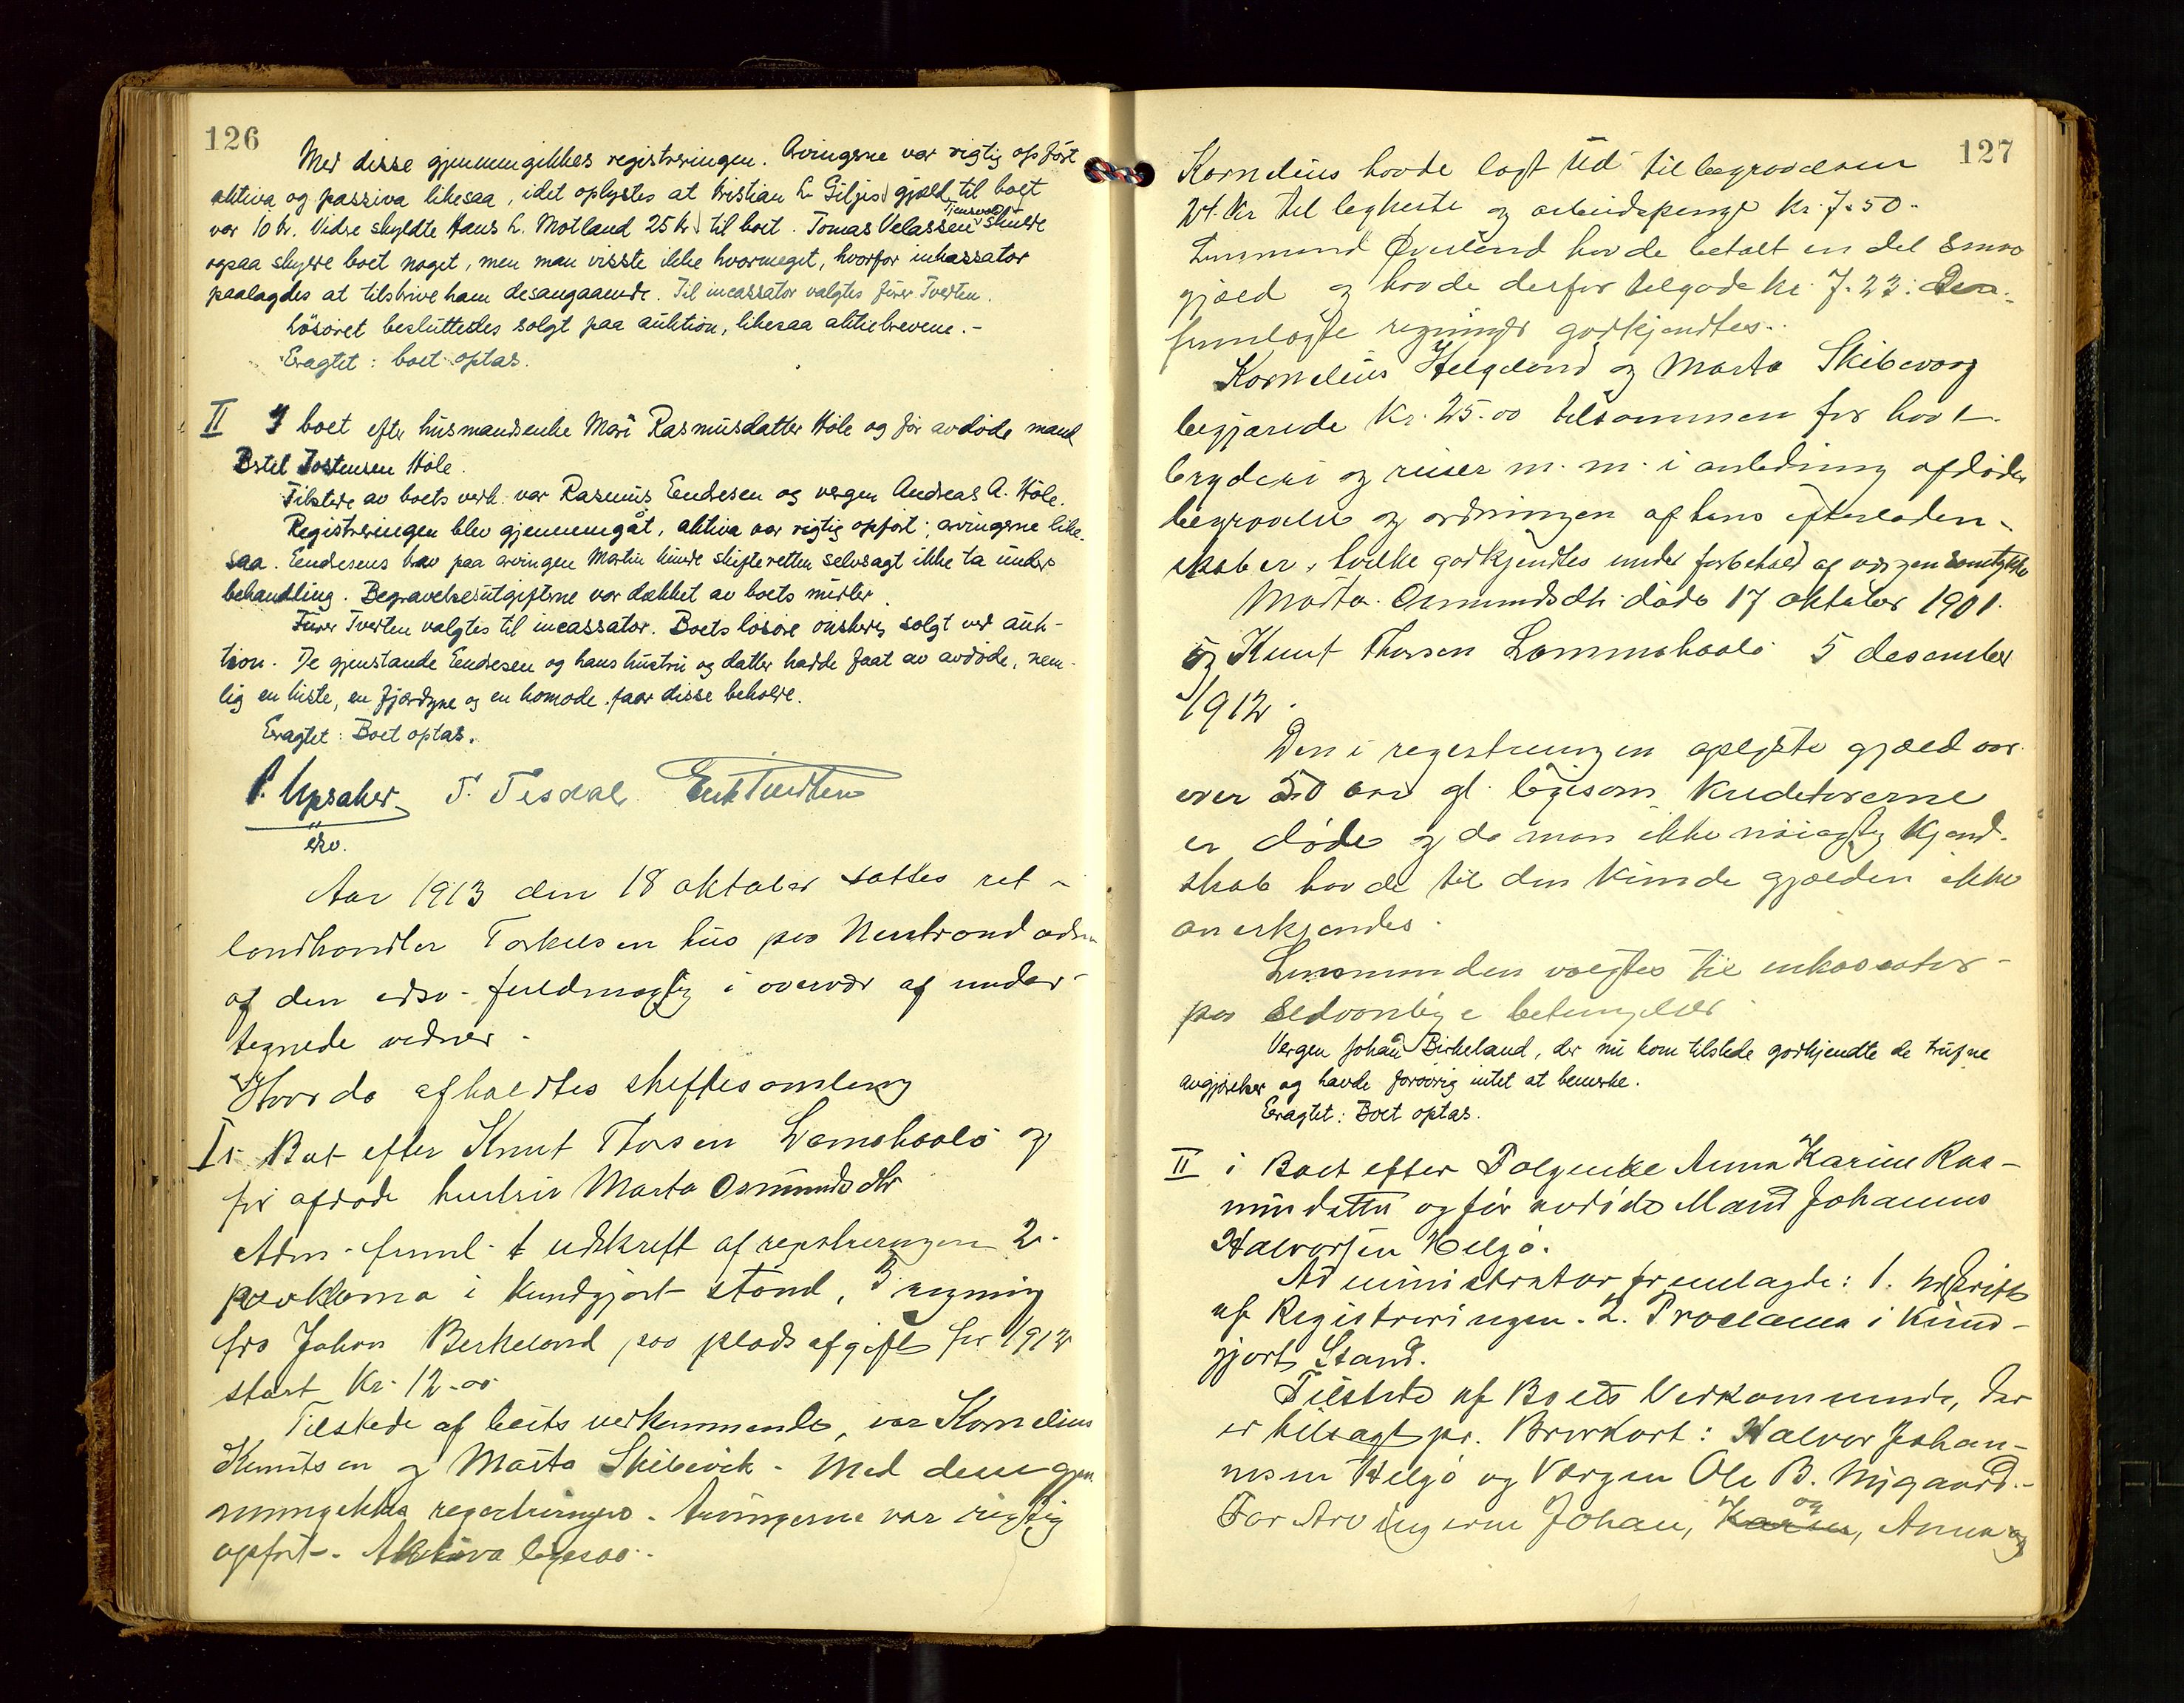 126
Med disse gjennemgikkes registreringen. Arvingerne var rigtig opført
aktiva og passiva likesaa, idet oplystes at Kristian L. Giljes gjæld til boet
var 10 kr. Vidre skyldte Hans L. Motland 25 kr til boet. Tomas Velassen Tensvold skulde
ogsaa skylde boet noget, men man visste ikke hvormeget, hvorfor inkassator
paalagdes at tilskrive ham desangaaende. Til incassator valgtes fører Tveten.
Løsøret besluttedes solgt paa auktion, likesaa aktiebrevene.-
Eragtet: boet optas.
II I boet efter husmandsenke Mari Rasmusdatter Hole og før avdøde mand
Bertil Jostensen Hole.
Tilstede av boets vedk. var Rasmus Endresen og vergen Andreas A. Hole.
Registreringen blev gjennemgåt, aktiva var rigtig opført; arvingerne like-
saa. Endresens krav paa arvingen Martin kunde skifteretten selvsagt ikke ta under
behandling. Begravelsesutgifterne var dækket av boets midler.
Fører Tveten valgtes til incassator. Boets løsøre ønskes solgt ved auk-
tion. De gjenstande Endresen og hans hustru og datter hadde faat av avdøde, nem-
lig en kiste, en fjærdyne og en komode, faar disse beholde.
Eragtet: Boet optas.
T. Tesdal
Aar 1913 den 18 oktober sattes ret -
landhandler Torkelsen hus paa Nerstrand adm
af den edsv. fuldmægtig i overvær af under-
tegnede vidner.
Hvorda afholdtes skiftesamling
I i Boet efter Knut Thorsen Lamshaalø og
før afdøde hustru Marta Osmundsdtr
Adm. freml. 1 udskrift af registreringen 2.
proklama i kundgjort stand, 3 regning
fra Johan Berkeland paa pladsafgift for 1912
stort Kr. 12.00
Tilstede af boets vedkommende, var Kornelius
Knutsen og Marta Skibevik. Med disse gjen
nemgikkes registreringen. Arvingerne var rigtig
opført. Aktiva ligesaa.
127
Kornelius havde lagt ud til begravelsen
24 Kr til ligkiste og arbeidspenge kr. 7.50.
Lensmand Øverland havde betalt en del smaa
gjæld og havde derfor tilgode kr. 7.23. Den
fremlagte regninger godkjendtes.
Kornelius Helgeland og Marta Skibevaag
begjærede Kr. 25.00 tilsammen for hvert
bryderi og reiser m. m. i anledning afdødes
begravelse og ordningen af hans efterladen-
skaber, hvilke godkjendtes under forbehold af vergens samtykke
Marta Osmundsdtr døde 17 oktober 1901.
og Knut Thorsen Lammehaalø 5 desember
1912.
Den i registreringen oplyste gjæld var
over 50 aar gl. ligesom kreditorerne
er døde og da man ikke nøiagtig kjend-
skab havde til den kunde gjælden ikke
anerkjendes.
Lensmanden valgtes til inkassator
paa sedvanlige betingelser
Vergen Johan Birkeland, der nu kom tilstede godkjendte de trufne
avgjørelser og havde forøvrig intet at bemerke.
Eragtet: Boet optas.
II i Boet efter Folgenke Anna Karine Ras-
musdatter og før avdøde Mand Johannes
Halvorsen Helgø.
Administrator fremlagde: 1. Udskrift
af Registreringen. 2. Proclama i Kund-
gjort Stand.
Tilstede af Boets Vedkommende, der
er tilsagt pr. Brevkort: Halvor Johan-
nesen Helgø og Værgen Ole B. Nygaard.-
For Arvingerne Johan, Karen, og Anna og